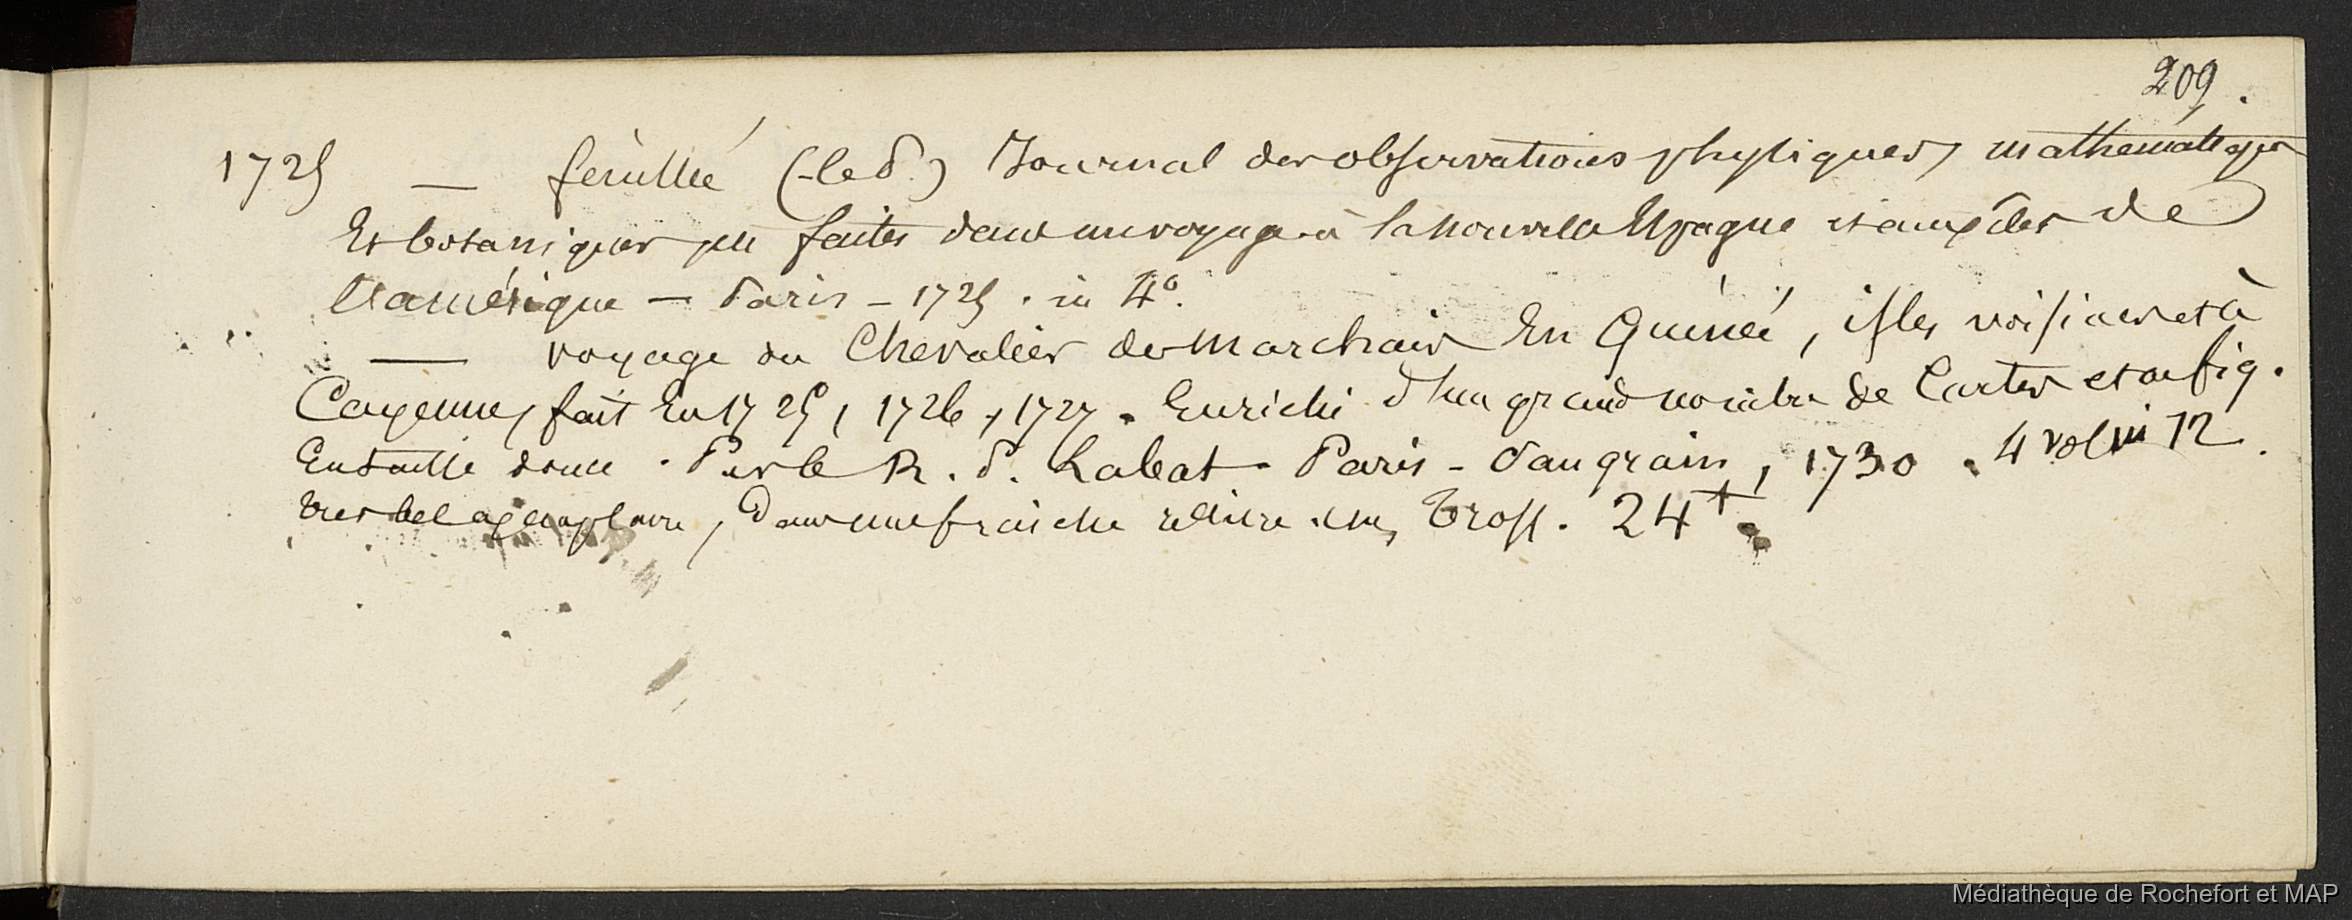 209.
1725 — feuillée (le P.) Journal des observations physiques, mathématiques
Et botaniques faites dans un voyage à la nouvelle Espagne et aux îles de
L'amérique — Paris — 1725. in 4°.
— voyage du Chevalier des marchais En Guinée, isles voisines et à
Cayenne, fait En 1725, 1726, 1727. Enrichi d'un grand nombre de Cartes et de fig.
En taille douce. Par le R. P. Labat. Paris - Saugrain, 1730. 4 vol in 12.
tres bel exemplaire, dans une fraiche reliure Tross. 24
Médiathèque de Rochefort et MAP